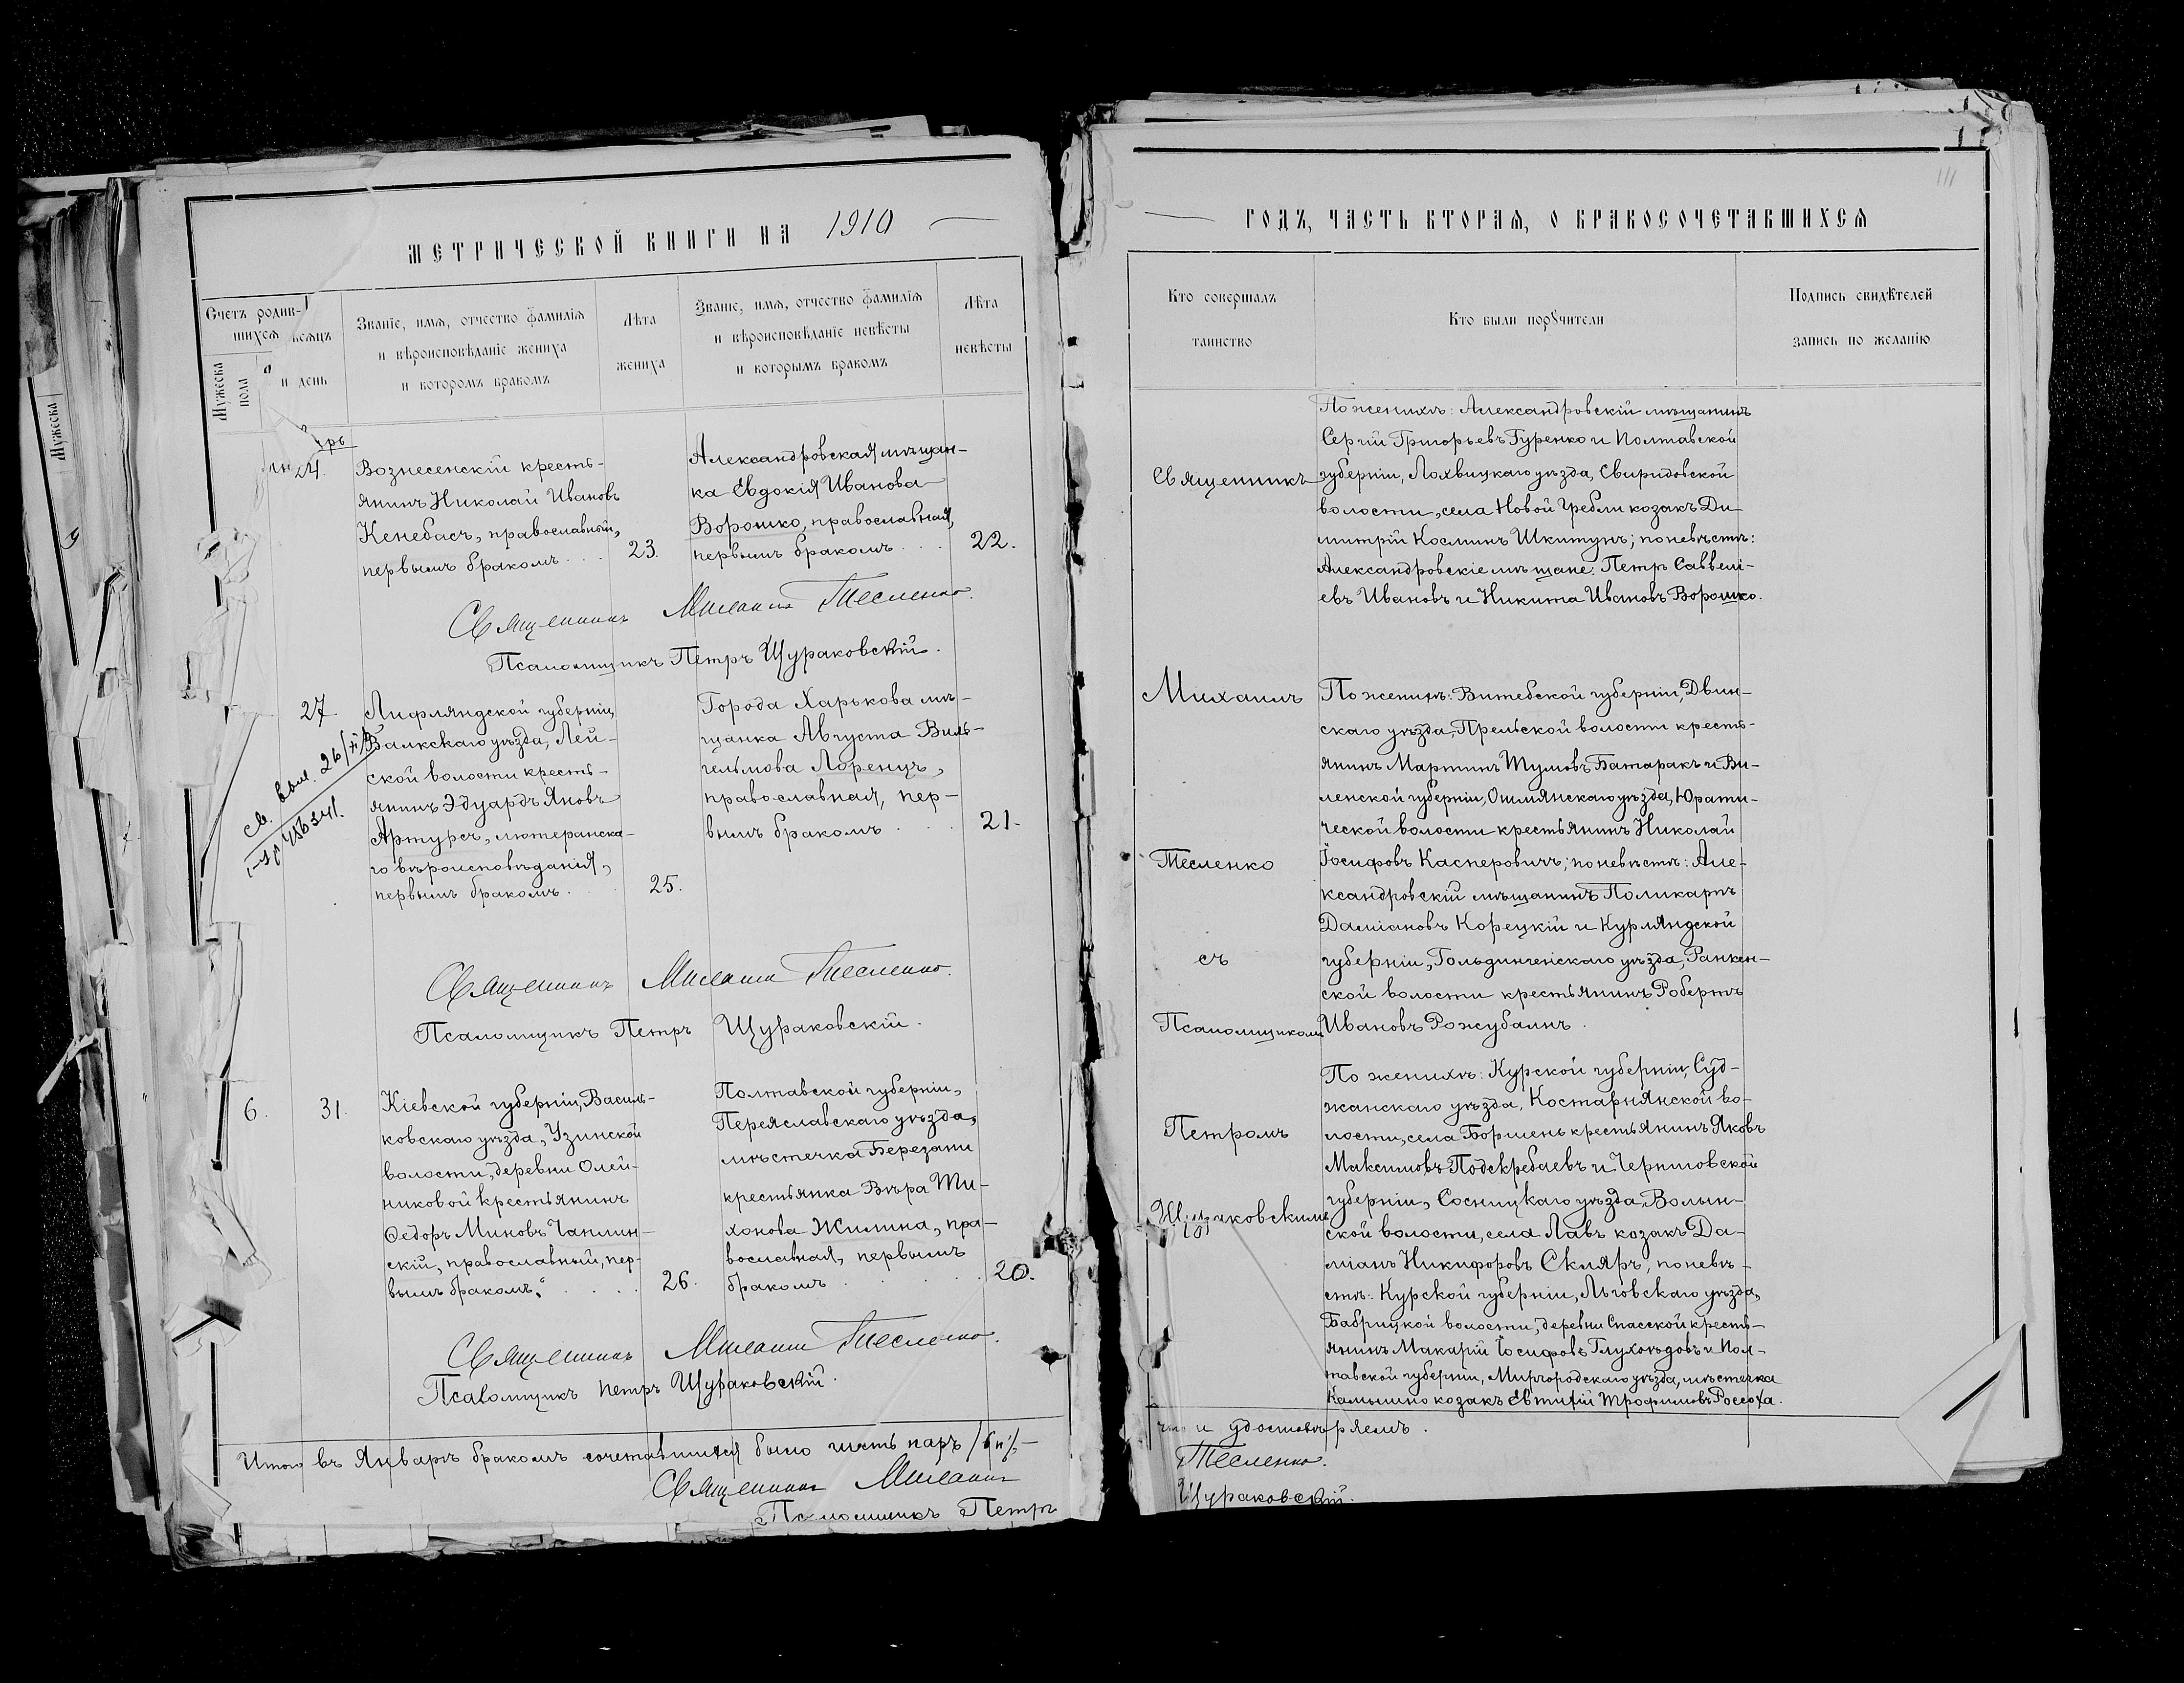 МЕТРИЧЕСКОЙ КНИГИ НА 1910
Счетъ родив-
шихся
Мужеска
пола
и день
Званіе, имя, отчество фамилія
и вѣроисповѣданіе жениха
и которомъ бракомъ
Лѣта
жениха
Званіе, имя, отчество фамилія
и вѣроисповѣданіе невѣсты
и которымъ бракомъ
Лѣта
невѣсты
Мужеска
24.
Вознесенскій кресть-
янинъ Николай Ивановъ
Кенебасъ, православный,
первымъ бракомъ . . .
23.
Александровская мѣщан-
ка Евдокія Иванова
Ворошко, православная,
первымъ бракомъ . . .
22.
Священникъ Михаилъ Тесленко.
Псаломщикъ Петръ Щураковскій.
27.
Лифляндской губерніи,
Валкскаго уѣзда, Лей-
ской волости кресть-
янинъ Эдуардъ Яновъ
Артурсъ, лютеранска-
го вѣроисповѣданія,
первымъ бракомъ . . .
25.
Города Харькова мѣ-
щанка Августа Виль-
гельмова Лоренцъ,
православная, пер-
вымъ бракомъ . . .
21.
Священникъ Михаилъ Тесленко.
Псаломщикъ Петръ Щураковскій.
6.
31.
Кіевской губерніи, Василь-
ковскаго уѣзда, Узинской
волости, деревни Олей-
никовой крестьянинъ
Ѳедоръ Миновъ Чаплин-
скій, православный, пер-
вымъ бракомъ. . . .
26.
Полтавской губерніи,
Переяславскаго уѣзда,
мѣстечка Березани
крестьянка Вѣра Ти-
хонова Жилина, пра-
вославная, первымъ
бракомъ . . . . .
20.
Священникъ Михаилъ Тесленко.
Псаломщикъ Петръ Щураковскій.
Итого въ Январѣ бракомъ сочетавшихся было шесть паръ /6 п./-
Священникъ Михаилъ
Псаломщикъ Петръ
111
ГОДЪ, ЧАСТЬ ВТОРАЯ, О БРАКОСОЧЕТАВШИХСЯ
Кто совершалъ
таинство
Кто были поручители
Подпись свидѣтелей
запись по желанію
Священникъ
Михаилъ
Тесленко
съ
Псаломщикомъ
Петромъ
По женихѣ: Александровскій мѣщанинъ
Сергій Григорьевъ Гуренко и Полтавской
губерніи, Лохвицкаго уѣзда, Свиридовской
волости, села Новой Гребли козакъ Ди-
митрій Косминъ Шкитунъ; по невѣстѣ:
Александровскіе мѣщане: Петръ Саввели-
евъ Ивановъ и Никита Ивановъ Ворошко.
По женихѣ: Витебской губерніи, Двин-
скаго уѣзда, Прельской волости кресть-
янинъ Мартинъ Тумовъ Батаракъ и Ви-
ленской губерніи, Ошмянскаго уѣзда, Юрати-
ческой волости крестьянинъ Николай
Іосифовъ Касперовичъ; по невѣстѣ: Але-
ксандровскій мѣщанинъ Поликарпъ
Даміановъ Корецкій и Курляндской
губерніи, Гольдингенскаго уѣзда, Ранкен-
ской волости крестьянинъ Робертъ
Ивановъ Рожубалнъ.
По женихѣ: Курской губерніи, Суд-
жанскаго уѣзда, Костарнянской во-
лости, села Борщень крестьянинъ Яковъ
Максимовъ Подскребаевъ и Черниговской
губерніи, Сосницкаго уѣзда, Волын-
ской волости, села Лавъ козакъ Да-
міанъ Никифоровъ Скляръ; по невѣ-
стѣ: Курской губерніи, Льговскаго уѣзда,
Бабрицкой волости, деревни Спасской кресть-
янинъ Макарій Іосифовъ Глухоѣдовъ и Пол-
тавской губерніи, Миргородскаго уѣзда, мѣстечка
Камышно козакъ Евтихій Трофимовъ Россоха.
что и удостовѣряемъ.
Тесленко.
Щураковскій.